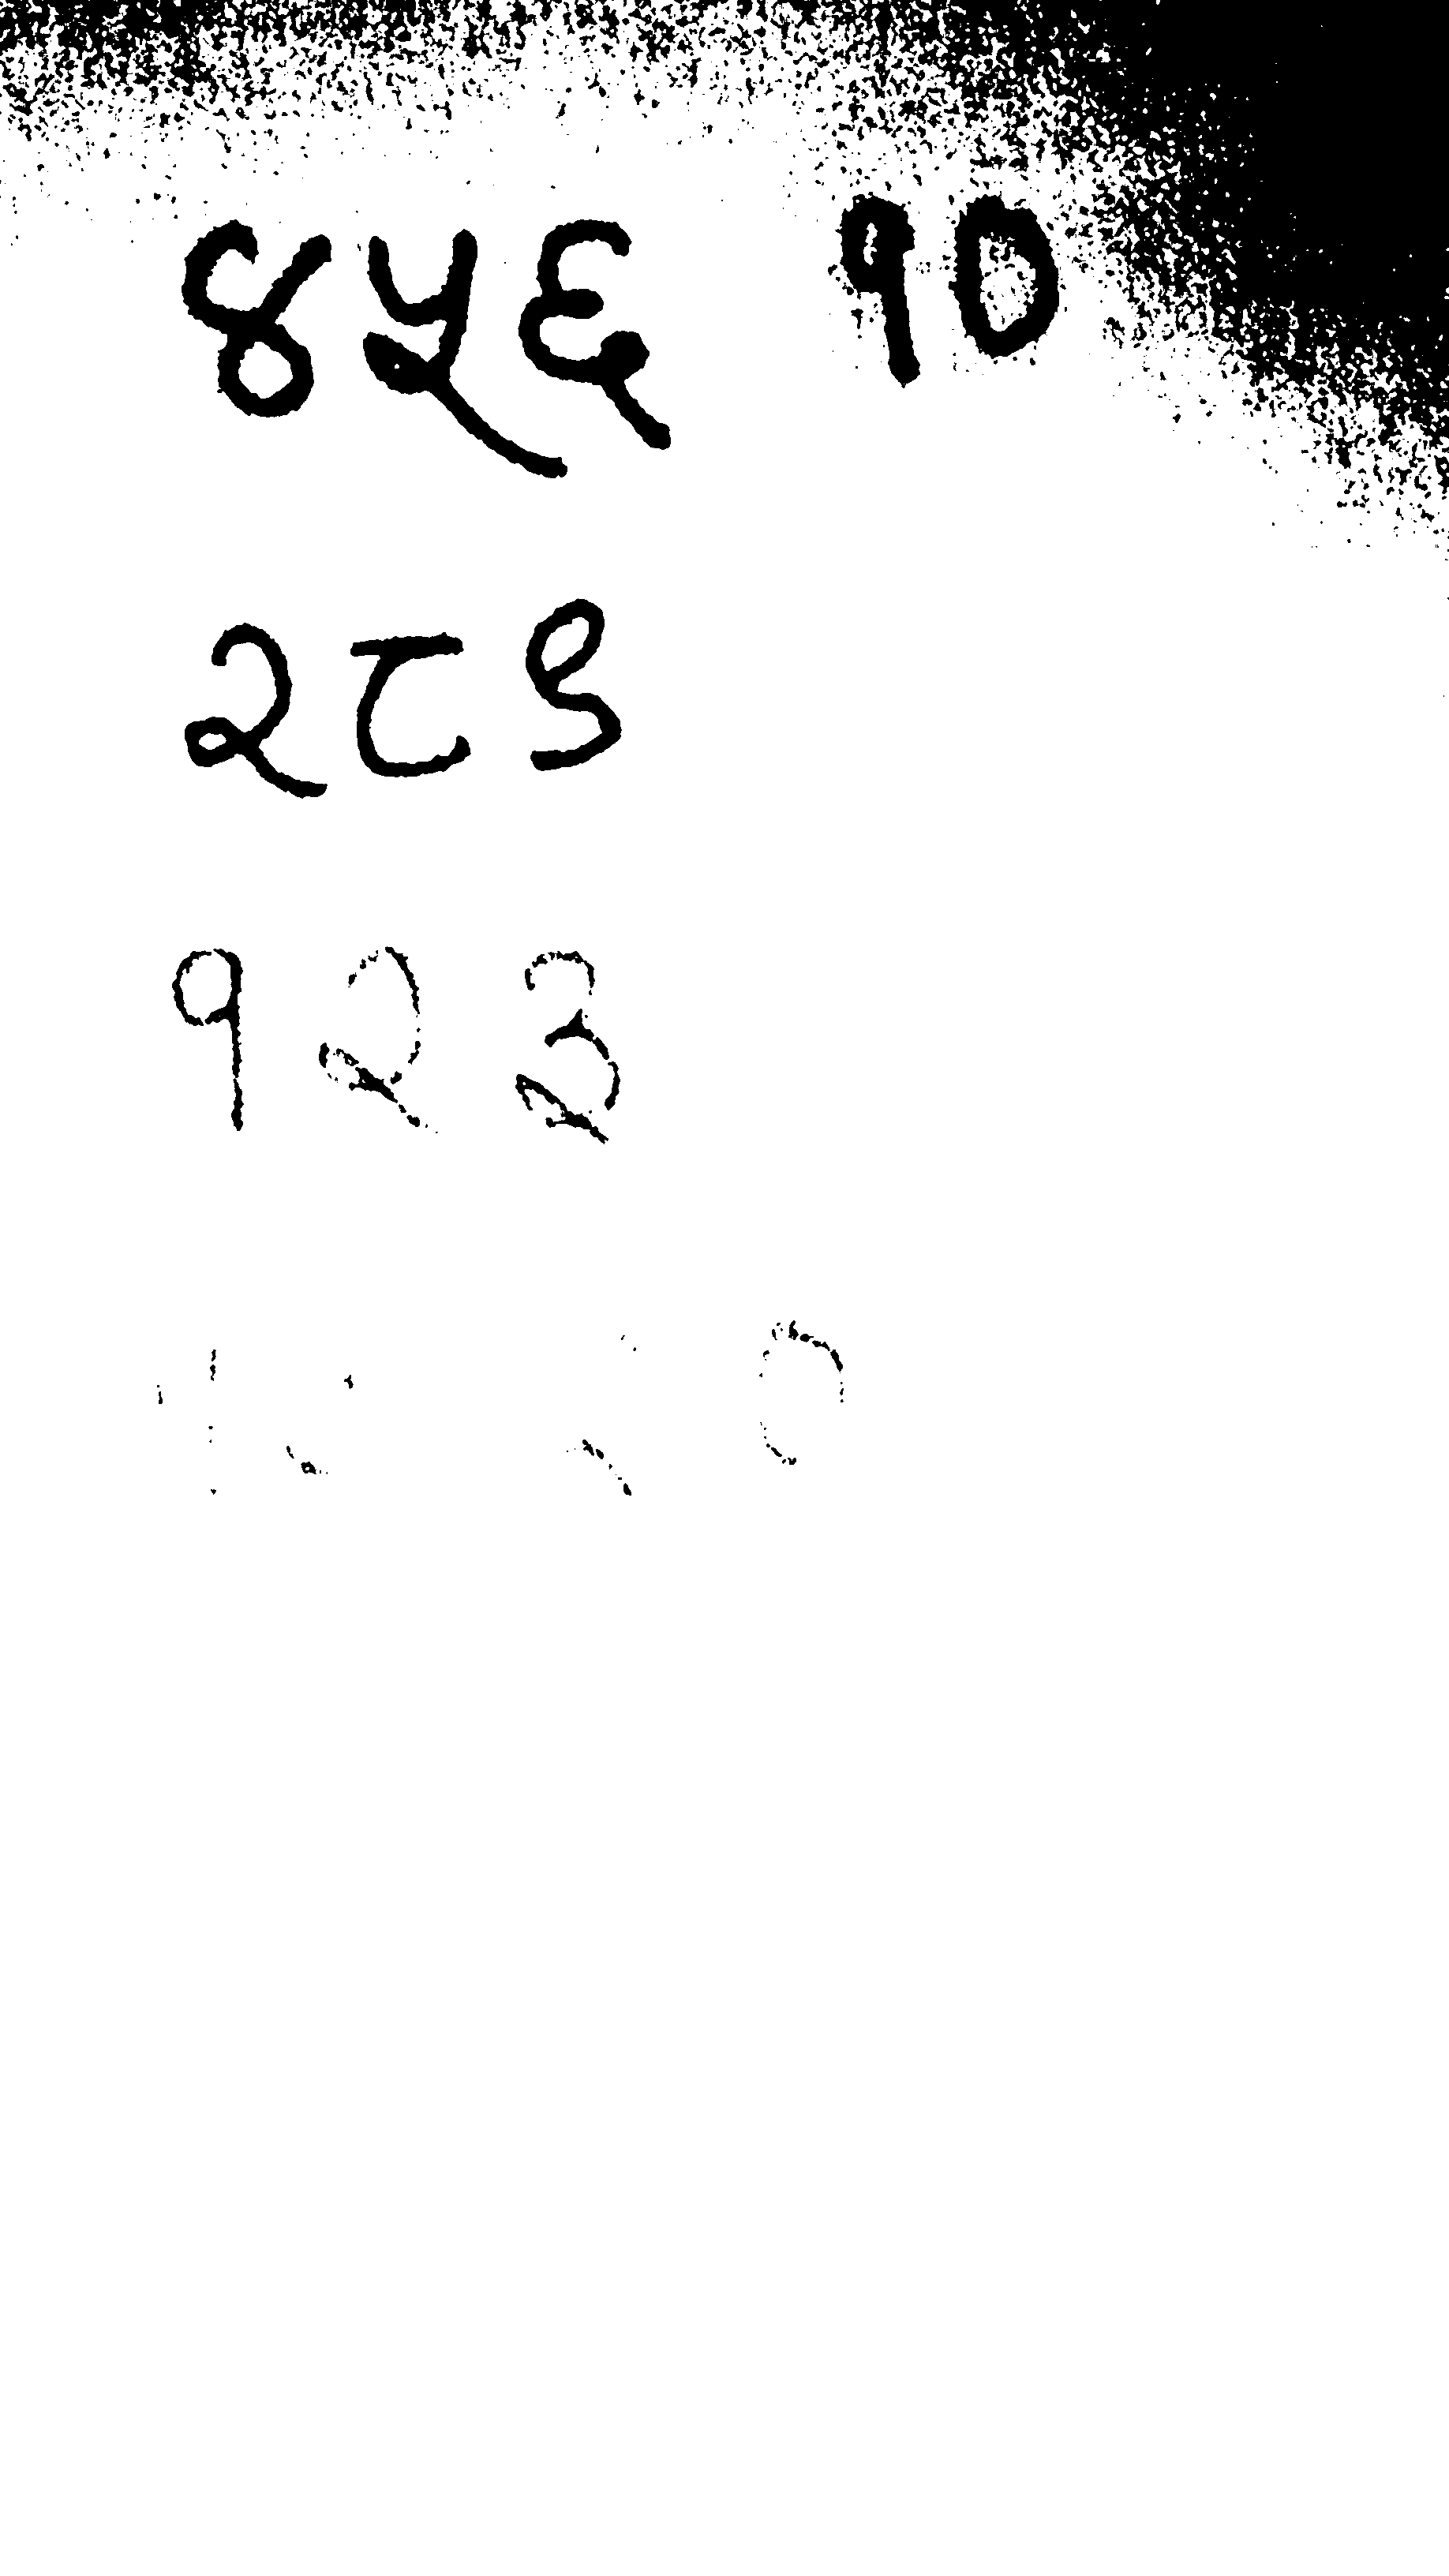 ४५६ १०
२८९
१२३